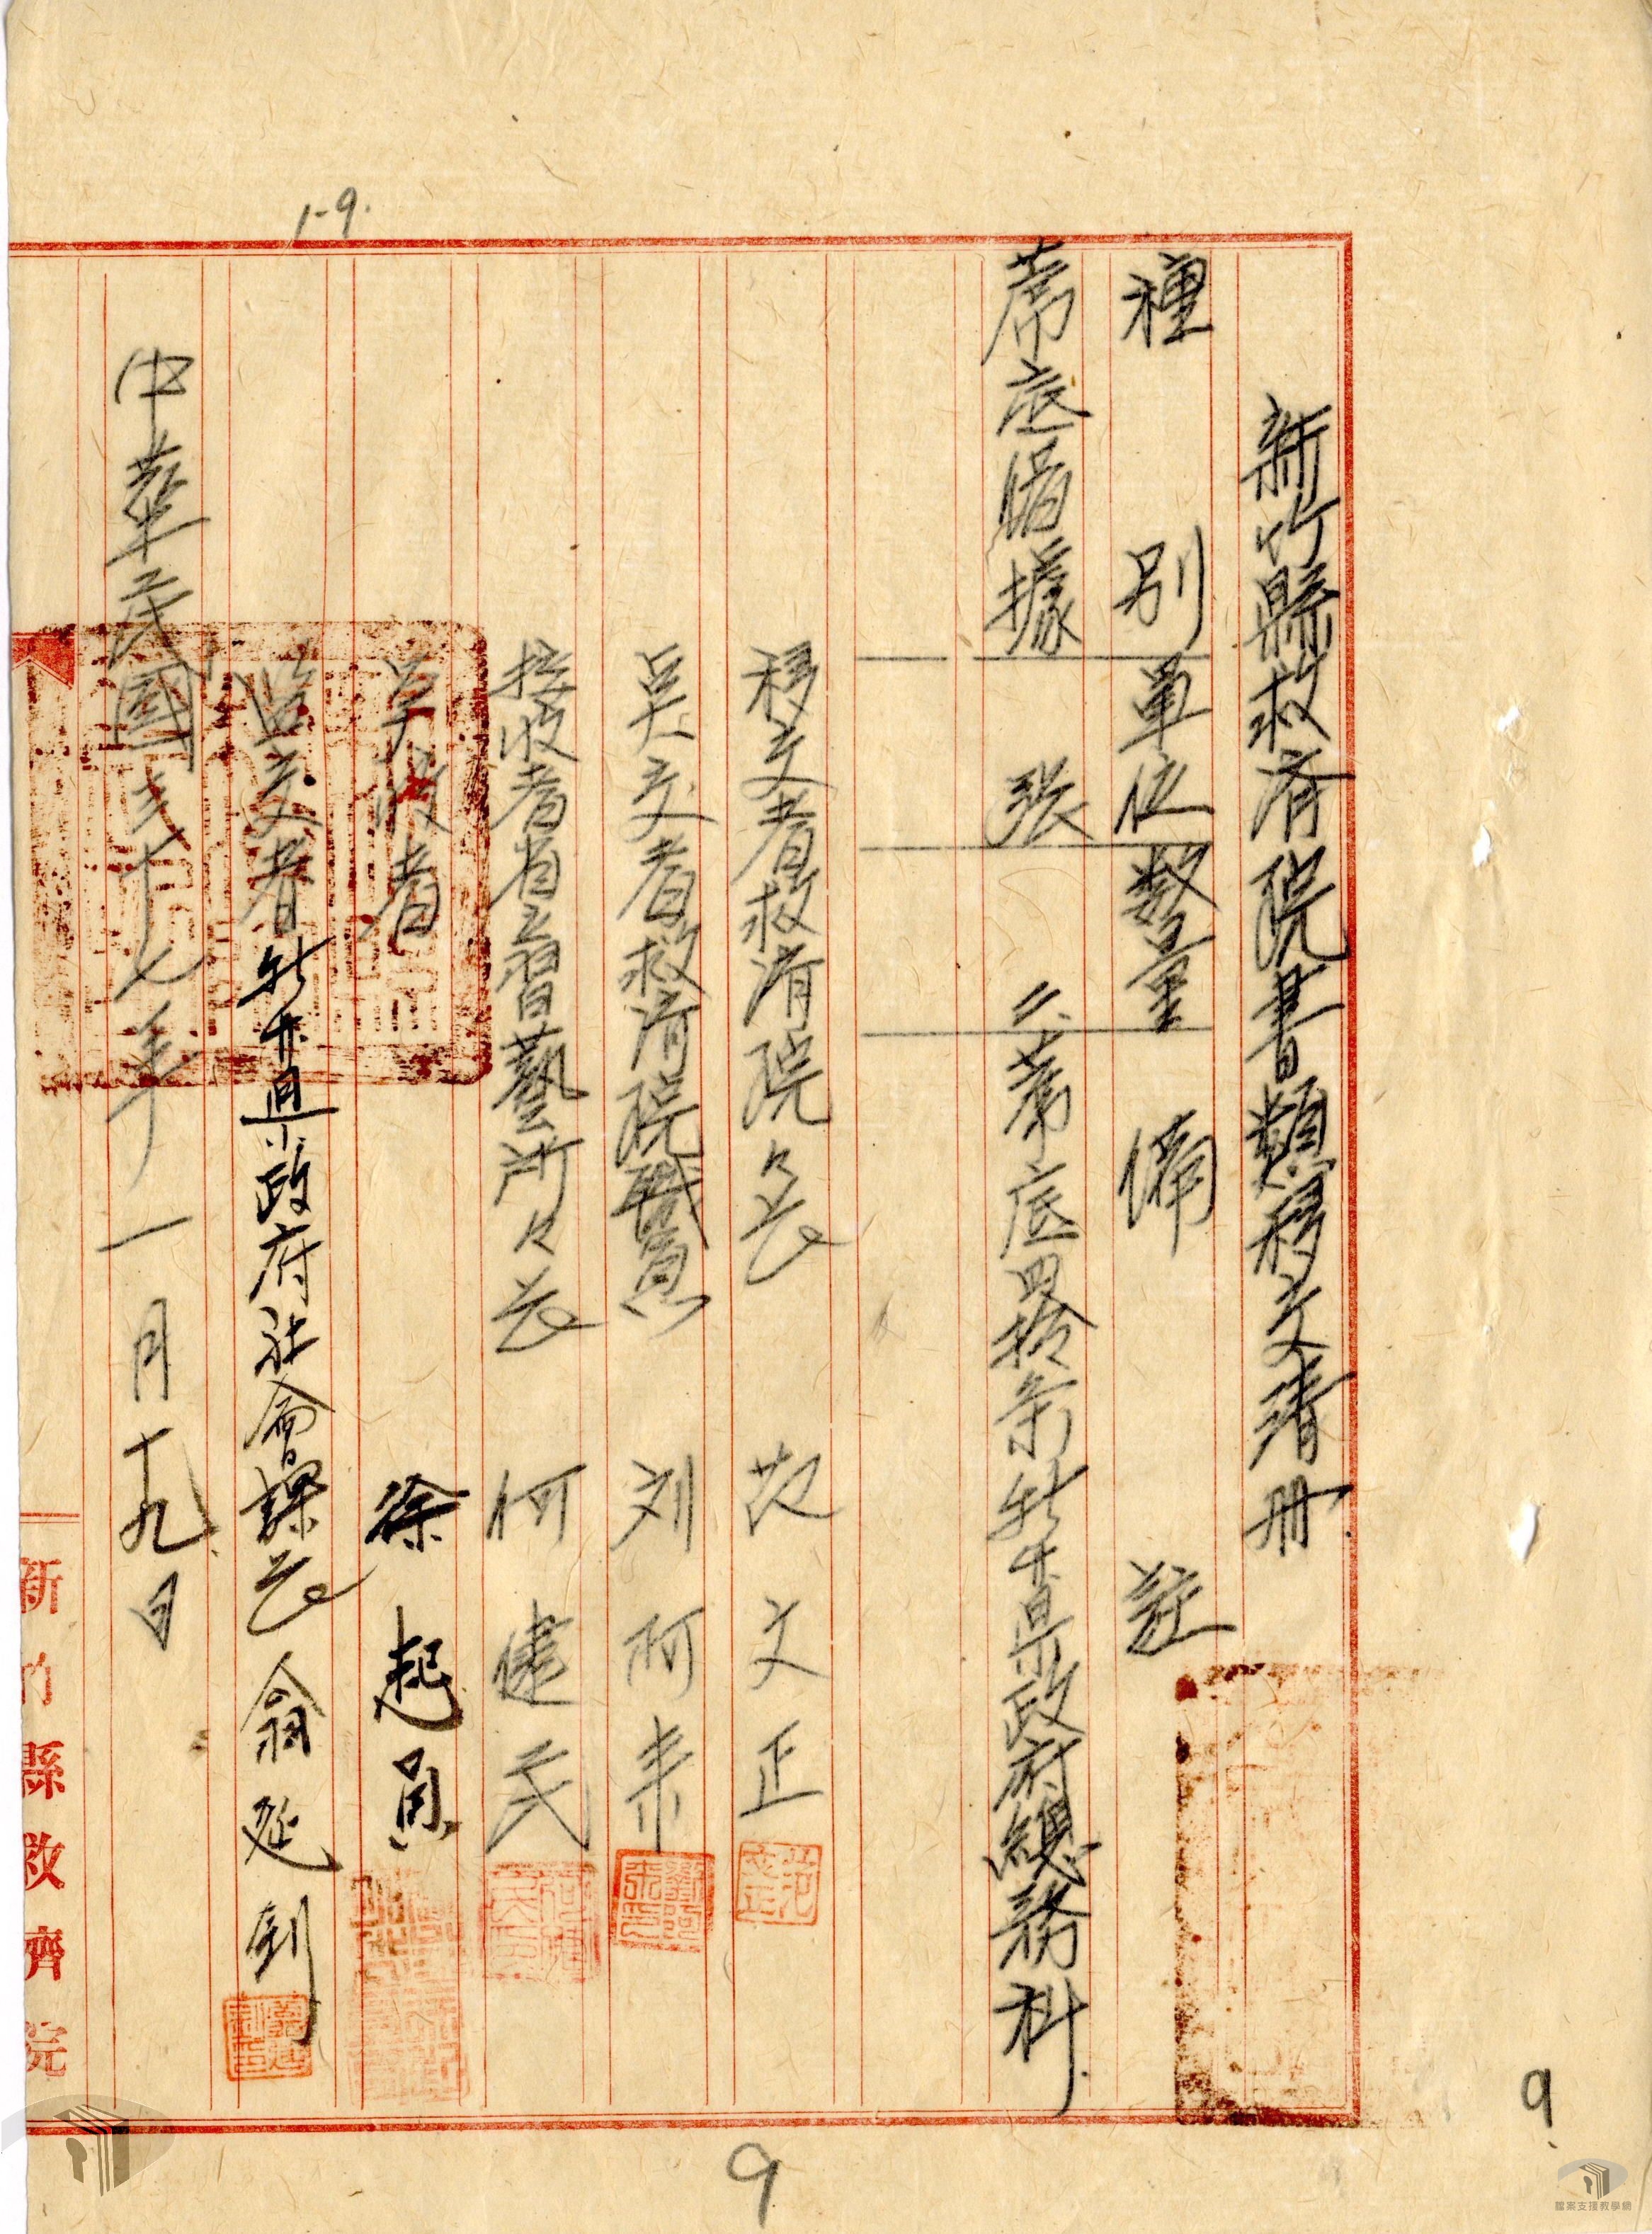 1-9.
新竹縣救済院書類移交清册
種別 單位 數量 備註
蓆底借據 張 二 蓆底四拾条新竹县政府總務科
移交者救済院々长 范文正
吴交者救済院職員 刘阿来
接收者省立習藝所々长 何健民
吴收者 徐起員
監交者新竹县政府社會課长 翁延釗
中華民國三十七年一月十九日
新竹縣救濟院
9
9
檔案支援教學網